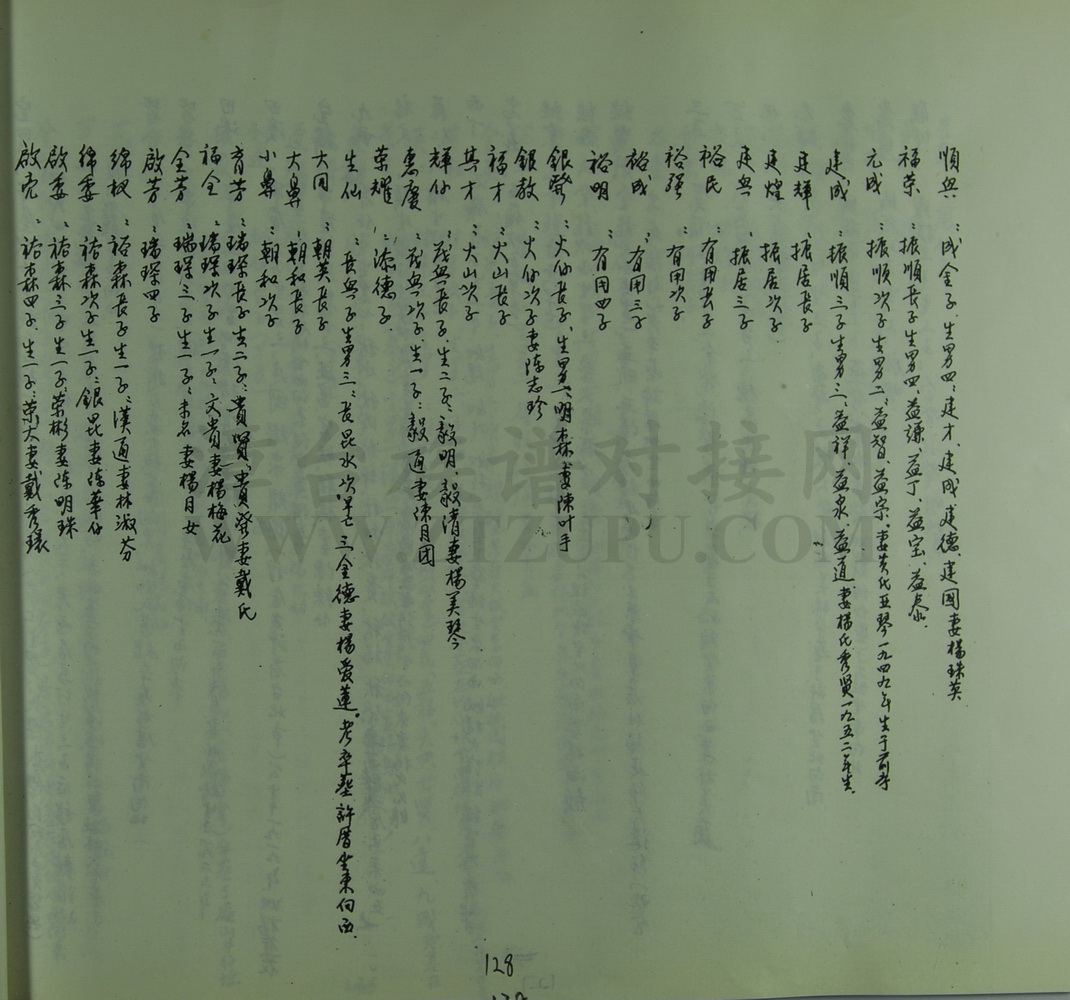 順興：成金子、生男四：建才、建成、建德、建国妻楊珠英
福荣：振順長子生男四、益謙、益丁、益宝、益泰.
元成：振順次子生男二、益智、益宗、妻黄氏亚琴一九四九年生于
建成：振順三子生男三、益祥、益泉、益道、妻楊氏秀賢一九五二年生.
建輝：振居長子
建煌：振居次子
建興：振居三子
裕民：有用長子
裕强：有用次子
裕成：有用三子
裕明：有用四子
銀發：火仙長子、生男一、明森妻陳叶手
銀教：火仙次子妻陈志珍
福才：火山長子
其才：火山次子
輝仔：茂興長子、生二子：毅明、毅清妻楊美琴
惠慶：茂興次子、生一子：毅通妻陳月国
荣耀：添德子.
生仙：長興子生男三：長昆水次早亡三金德妻楊爱蓮.考卒葬許厝坐東向西.
大同：朝英長子
大鼻：朝和長子
小鼻：朝和次子
育芳：瑞琛長子生二子：貴賢、貴發妻戴氏
福全：瑞琛次子生一子：文貴妻楊梅花
全芳：瑞琛三子生一子：未名妻楊月女
啟芳：瑞琛四子
綿权：裕森長子生一子：漢通妻林淑芬
綿委：裕森次子生一子：銀昆妻陈華仔
啟委：裕森三子生一子：荣彬妻陈明珠
啟完：裕森四子、生一子：荣大妻戴秀環
128
台族谱对接网
WWW.STZUPU.COM